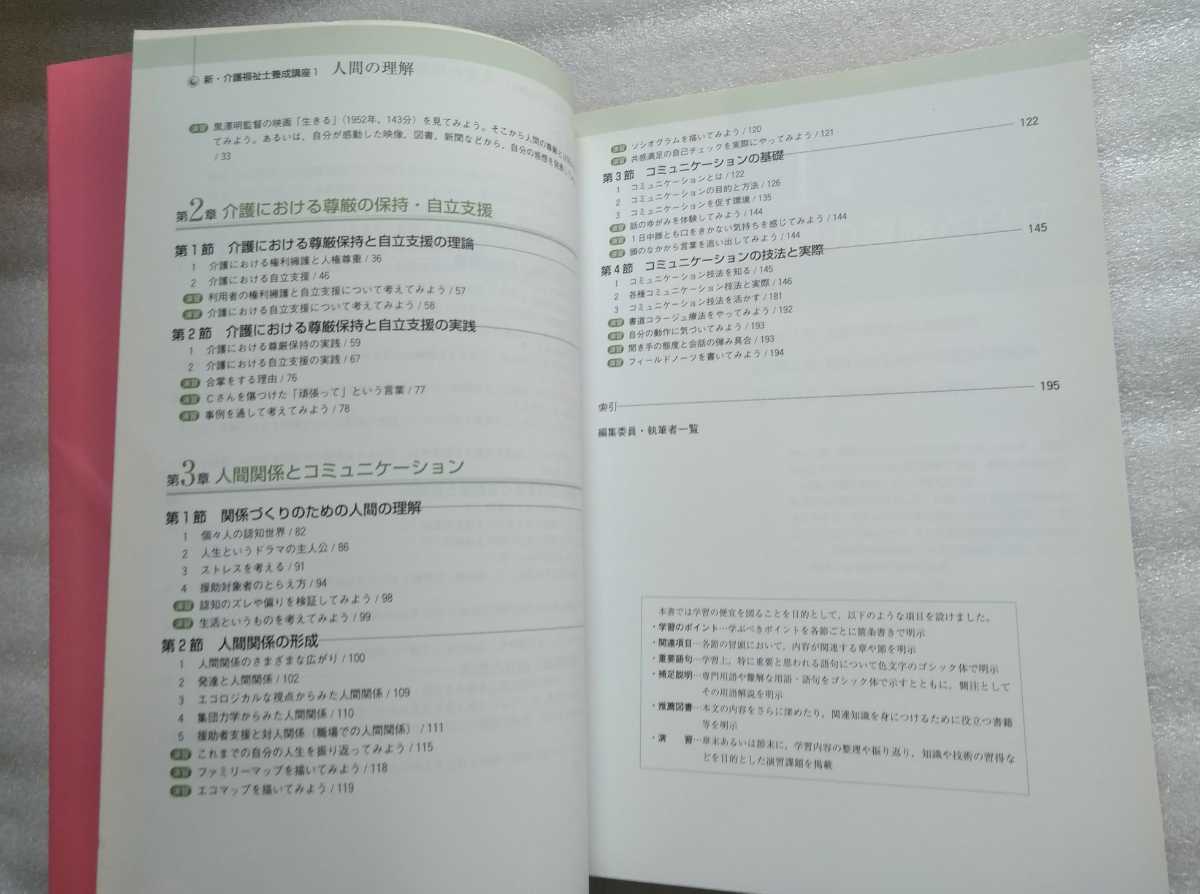 新・介護福祉士養成講座1 人間の理解
演習 黒澤明監督の映画「生きる」(1952年、143分)を見てみよう。そこから人間の尊厳と
てみよう。あるいは、自分が感動した映像、図書、新聞などから、自分の感想を
/ 33
第2章 介護における尊厳の保持・自立支援
第1節 介護における尊厳保持と自立支援の理論
1 介護における権利擁護と人権尊重 / 36
2 介護における自立支援 / 46
演習 利用者の権利擁護と自立支援について考えてみよう / 57
演習 介護における自立支援について考えてみよう / 58
第2節 介護における尊厳保持と自立支援の実践
1 介護における尊厳保持の実践 / 59
2 介護における自立支援の実践 / 67
演習 合掌をする理由 / 76
演習 Cさんを傷つけた「頑張って」という言葉 / 77
演習 事例を通して考えてみよう / 78
第3章 人間関係とコミュニケーション
第1節 関係づくりのための人間の理解
1 個々人の認知世界 / 82
2 人生というドラマの主人公 / 86
3 ストレスを考える / 91
4 援助対象者のとらえ方 / 94
演習 認知のズレや偏りを検証してみよう / 98
演習 生活というものを考えてみよう / 99
第2節 人間関係の形成
1 人間関係のさまざまな広がり / 100
2 発達と人間関係 / 102
3 エコロジカルな視点からみた人間関係 / 109
4 集団力学からみた人間関係 / 110
5 援助者支援と対人関係(職場での人間関係) / 111
演習 これまでの自分の人生を振り返ってみよう / 115
演習 ファミリーマップを描いてみよう / 118
演習 エコマップを描いてみよう / 119
演習 ソシオグラムを描いてみよう / 120
演習 共感満足の自己チェックを実際にやってみよう / 121
第3節 コミュニケーションの基礎 122
1 コミュニケーションとは / 122
2 コミュニケーションの目的と方法 / 126
3 コミュニケーションを促す環境 / 135
演習 話のゆがみを体験してみよう / 144
演習 1日中誰とも口をきかない気持ちを感じてみよう / 144
演習 頭のなかから言葉を追い出してみよう / 144
第4節 コミュニケーションの技法と実際 145
1 コミュニケーション技法を知る / 145
2 各種コミュニケーション技法と実際 / 146
3 コミュニケーション技法を活かす / 181
演習 書道コラージュ療法をやってみよう / 192
演習 自分の動作に気づいてみよう / 193
演習 聞き手の態度と会話の弾み具合 / 193
演習 フィールドノーツを書いてみよう / 194
索引 195
編集委員・執筆者一覧
本書では学習の便宜を図ることを目的として、以下のような項目を設けました。
・学習のポイント…学ぶべきポイントを各節ごとに箇条書きで明示
・関連項目…各節の冒頭において、内容が関連する章や節を明示
・重要語句…学習上、特に重要と思われる語句について色文字のゴシック体で明示
・補足説明…専門用語や難解な用語・語句をゴシック体で示すとともに、側注として
その用語解説を明示
・推薦図書…本文の内容をさらに深めたり、関連知識を身につけるために役立つ書籍
等を明示
・演 習…章末あるいは節末に、学習内容の整理や振り返り、知識や技術の習得な
どを目的とした演習課題を掲載